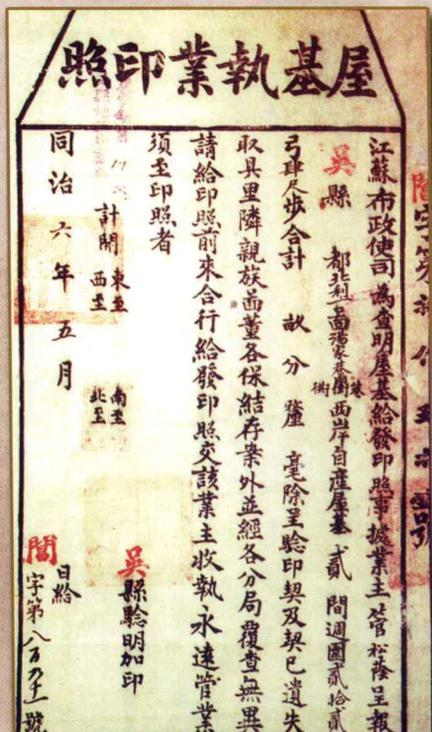 屋基執業印照
江蘇布政使司為查明屋基給發印照事據業主管松蔭呈報
吳縣 都北利一啚湯家巷 西岸自產屋基貳間週圍貳拾貳
弓肆尺步合計 畝 分 釐 毫除呈驗印契及契已遺失
取具里隣親族啚董各保結存案外並經各分局覆查無異
請給印照前來合行給發印照交該業主收執永遠管業
須至印照者
計開 東至 西至 南至 北至
吳縣驗明加印
同治六年五月 日給
閶字第八百 號